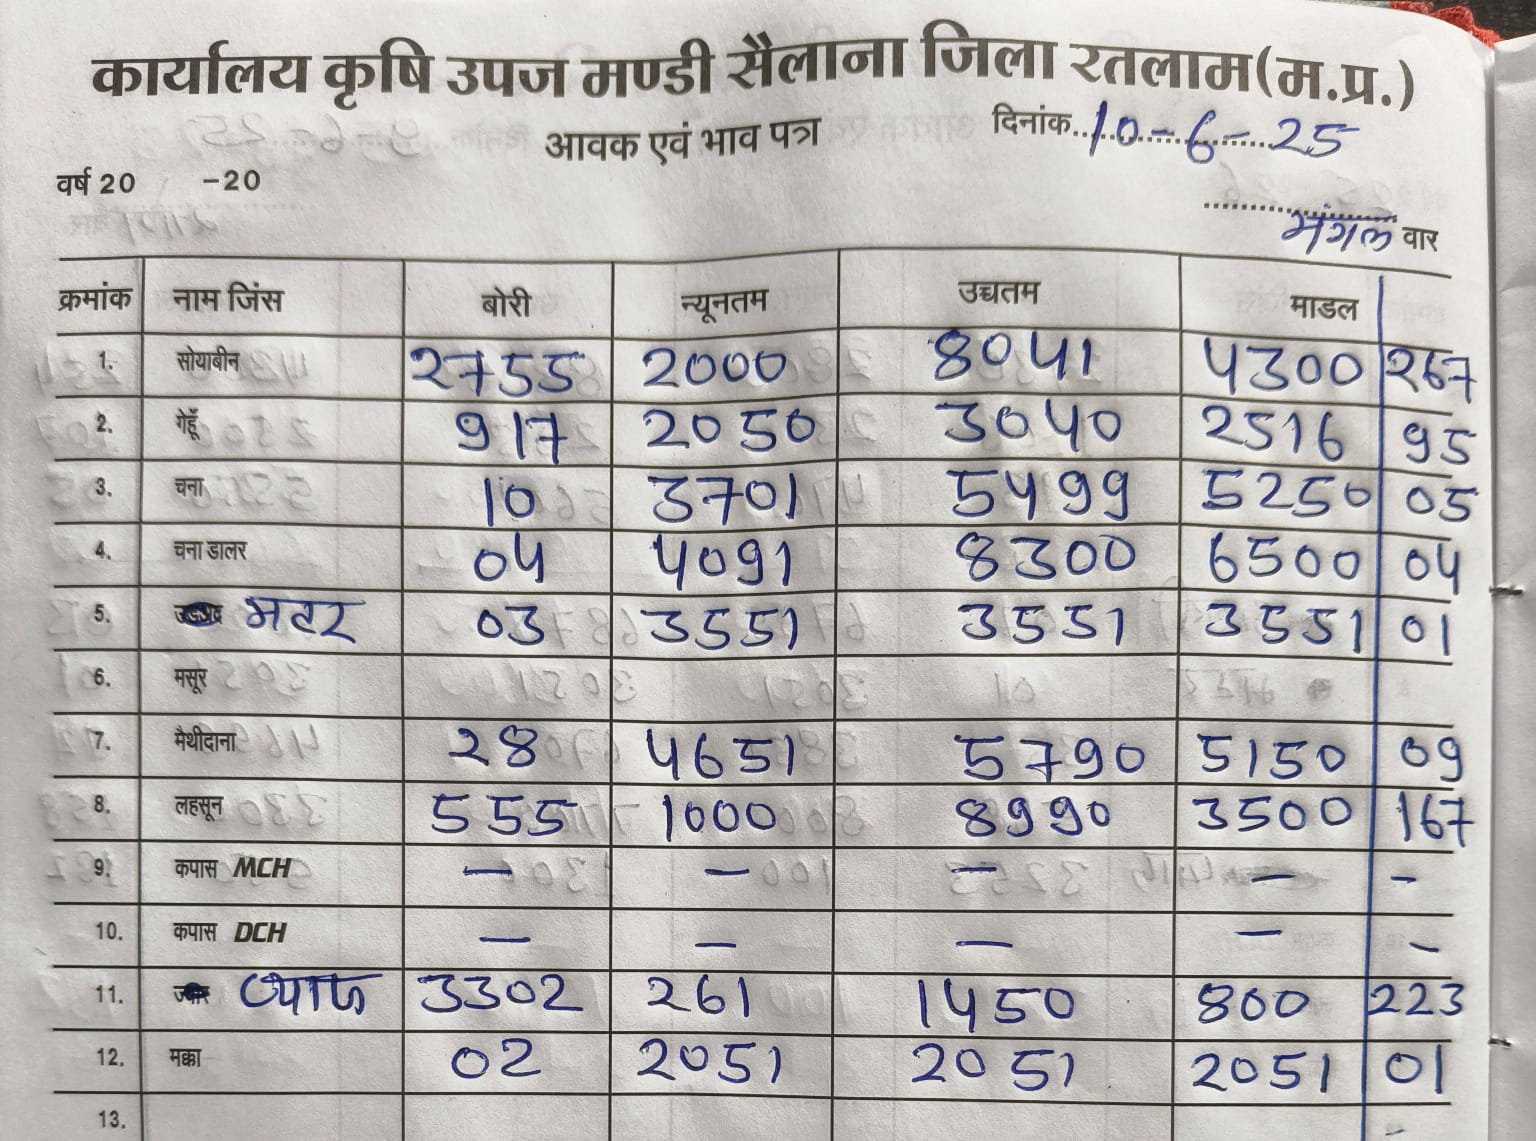 कार्यालय कृषि उपज मण्डी सैलाना जिला रतलाम(म.प्र.)
आवक एवं भाव पत्रा दिनांक 10-6-25
वर्ष 20 -20
मंगल वार
क्रमांक नाम जिंस बोरी न्यूनतम उच्चतम माडल
1. सोयाबीन 2755 2000 8041 4300 267
2. गेहूँ 917 2050 3040 2516 95
3. चना 10 3701 5499 5250 05
4. चना डालर 04 4091 8300 6500 04
5. मटर 03 3551 3551 3551 01
6. मसूर
7. मैथीदाना 28 4651 5790 5150 09
8. लहसून 555 1000 8990 3500 167
9. कपास MCH — — — — -
10. कपास DCH — — — — -
11. प्याज 3302 261 1450 800 223
12. मक्का 02 2051 2051 2051 01
13.